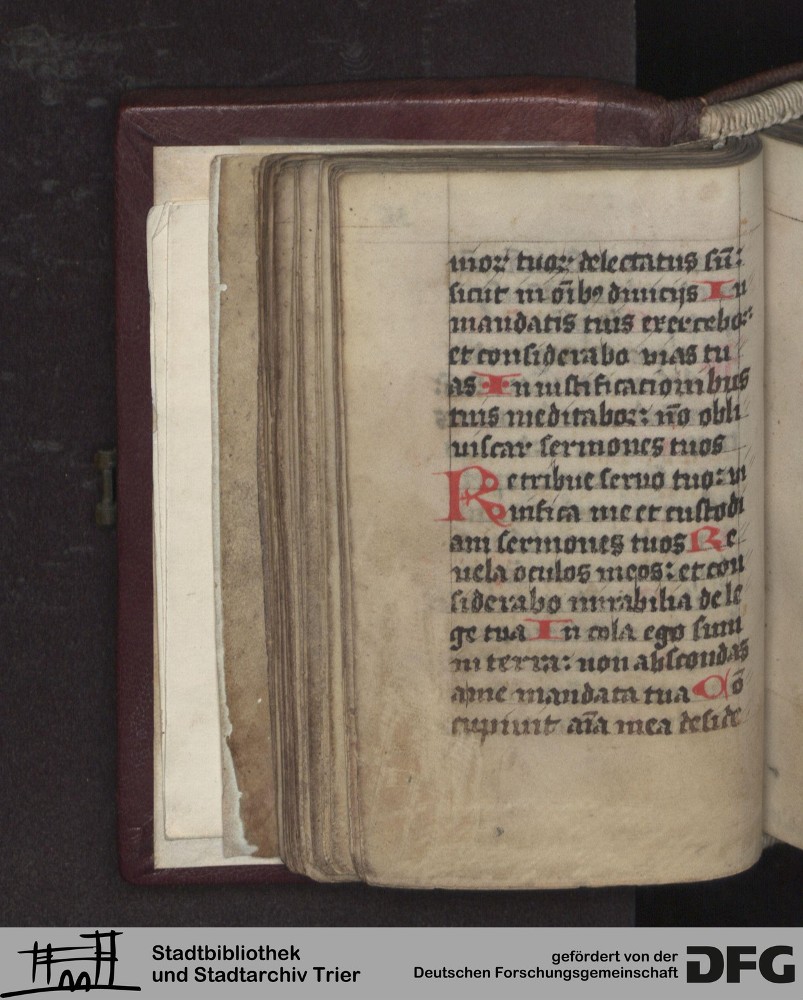 mor tuor delectatus sū:
sicut in oīb9 diuicijs In
mandatis tuis exercebor:
et considerabo uias tu
as In iustificacionibus
tuis meditabor: nō obli
uiscar sermones tuos
Retribue seruo tuo: ui
uifica me et custodi
am sermones tuos Re
uela oculos meos: et con
siderabo mirabilia de le
ge tua In cola ego sum
in terra: non abscondas
a me mandata tua Cō
cupiuit aīa mea deside
Stadtbibliothek
und Stadtarchiv Trier
gefördert von der
Deutschen Forschungsgemeinschaft
DFG